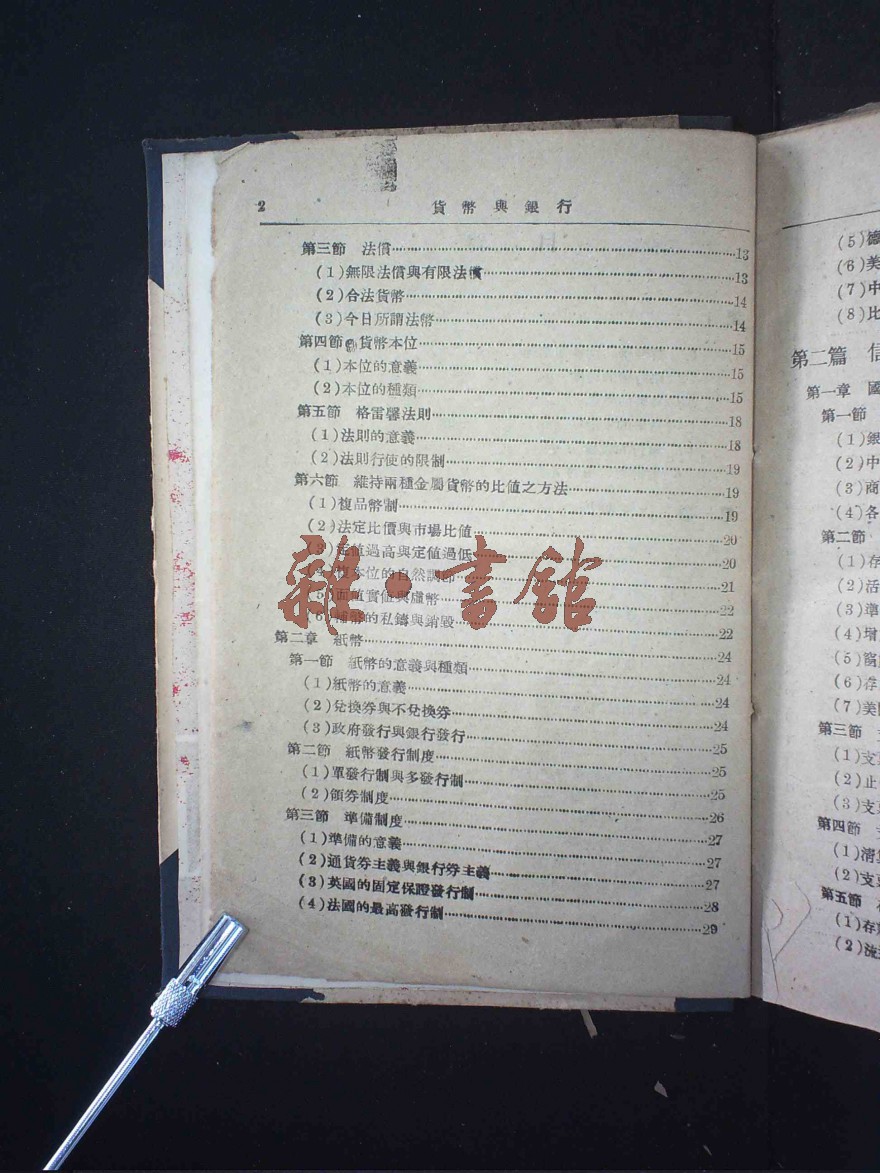 2
貨幣與銀行
第三節 法償……13
(1)無限法償與有限法償……13
(2)合法貨幣……14
(3)今日所謂法幣……14
第四節 貨幣本位……15
(1)本位的意義……15
(2)本位的種類……15
第五節 格雷馨法則……18
(1)法則的意義……18
(2)法則行使的限制……19
第六節 維持兩種金屬貨幣的比值之方法……19
(1)複品幣制……19
(2)法定比價與市場比值……20
(3)定值過高與定值過低……20
(4)複本位的自然調節……21
(5)面值實值與虛幣……22
(6)補幣的私鑄與銷毀……22
第二章 紙幣……24
第一節 紙幣的意義與種類……24
(1)紙幣的意義……24
(2)兌換券與不兌換券……24
(3)政府發行與銀行發行……25
第二節 紙幣發行制度……25
(1)單發行制與多發行制……25
(2)領券制度……26
第三節 準備制度……27
(1)準備的意義……27
(2)通貨券主義與銀行券主義……27
(3)英國的固定保證發行制……28
(4)法國的最高發行制……29
雜·書館
(5)德
(6)美
(7)中
(8)比
第二篇 信
第一章 國
第一節
(1)銀
(2)中
(3)商
(4)各
第二節
(1)存
(2)活
(3)準
(4)增
(5)窮
(6)存
(7)美
第三節
(1)支
(2)止
(3)支
第四節
(1)清
(2)支
第五節
(1)存
(2)流